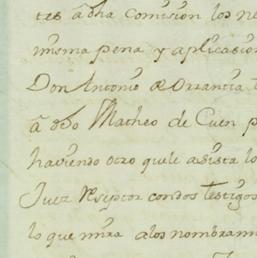 tes â dha Comision los ne
misma pena y aplicasion
Don Antonio de Orrantia
â dho Matheo de Cuen p
haviendo otro quele asista lo
Juez Reseptor condos testigos
lo que mira alos nombram